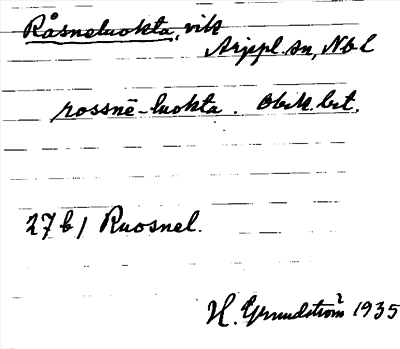 Råsneluokta, vik
Arjepl. sn, Nbl
rossnē-luokta. Obek. bet.
27 b/ Ruosnel.
H. Grundström 1935